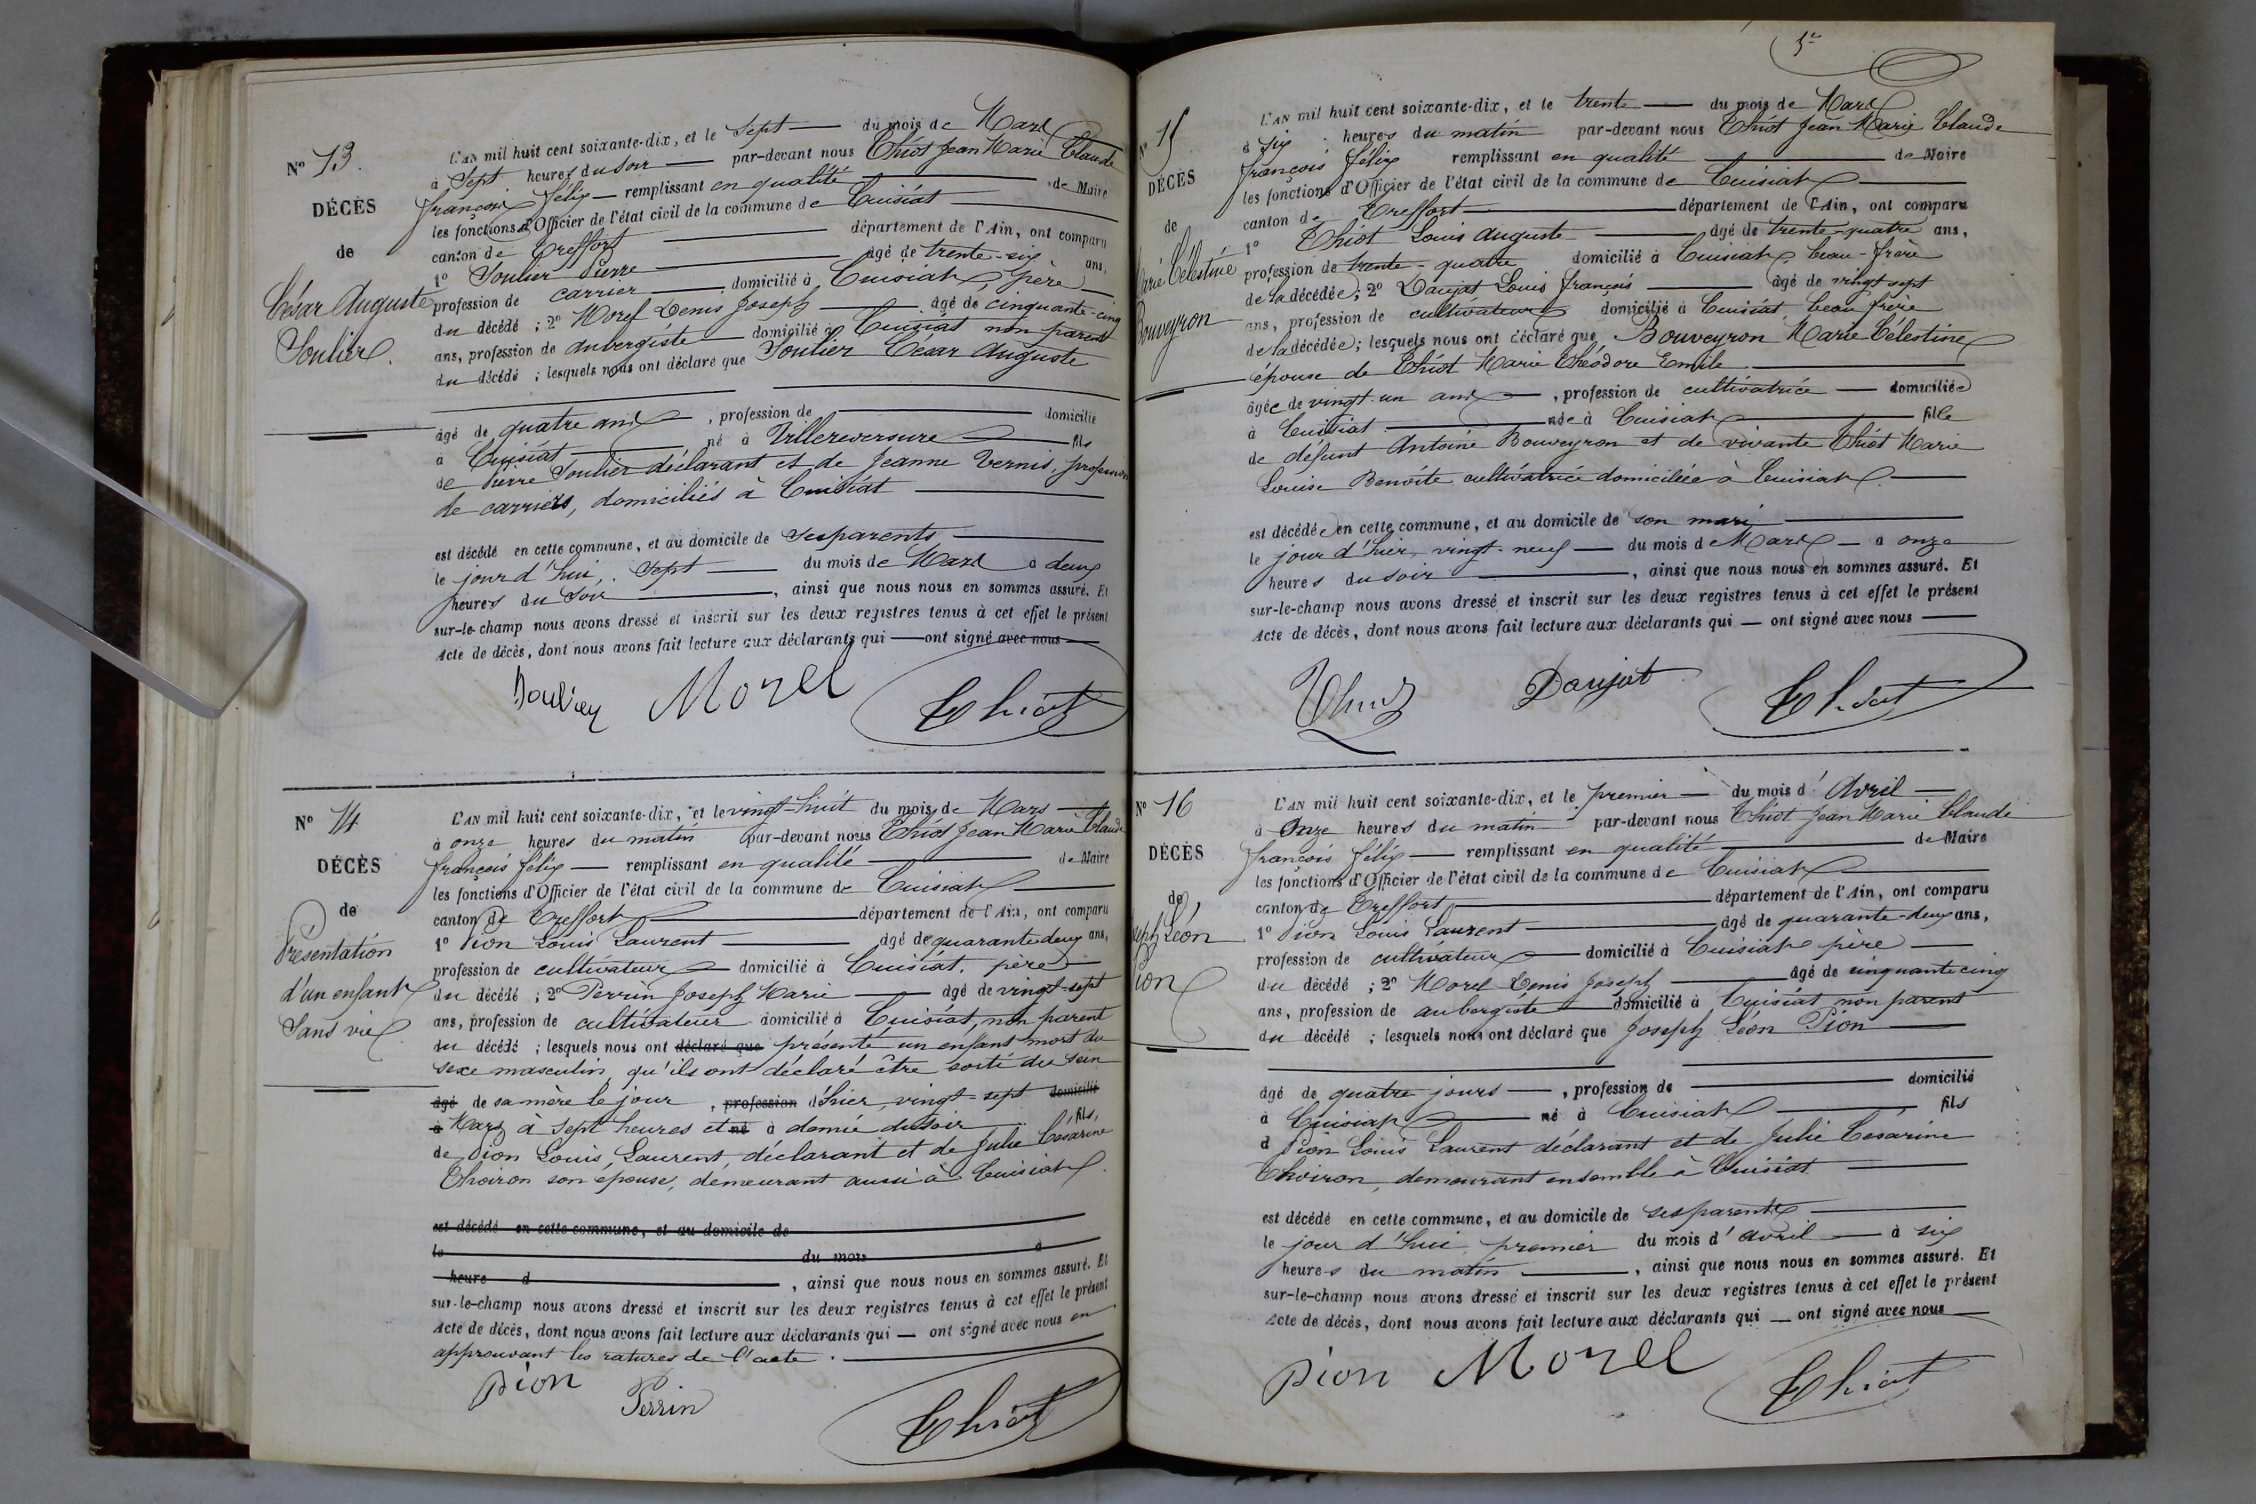 Nº 13.
DÉCÈS
de
César Auguste
Soulier.
L'AN mil huit cent soixante-dix, et le sept du mois de Mars
à Sept heures du soir par-devant nous Thiot Jean Marie Claude
françois félix remplissant en qualité de Maire
les fonctions d'Officier de l'état civil de la commune de Cuisiat
canton de Treffort département de l'Ain, ont comparu
1º Soulier Pierre âgé de trente-six ans,
profession de carrier domicilié à Cuisiat, père
du décédé ; 2º Morel Denis Joseph âgé de cinquante-cinq
ans, profession de aubergiste domicilié à Cuisiat non parent
du décédé ; lesquels nous ont déclaré que Soulier César Auguste
âgé de quatre ans , profession de domicilié
à Cuisiat né à Villereversure fils
de Pierre Soulier déclarant et de Jeanne Vernis, profession
de carriers, domiciliés à Cuisiat
est décédé en cette commune, et au domicile de ses parents
le jour d'hui, sept du mois de Mars à deux
heures du soir , ainsi que nous nous en sommes assuré. Et
sur-le-champ nous avons dressé et inscrit sur les deux registres tenus à cet effet le présent
Acte de décès, dont nous avons fait lecture aux déclarants qui ont signé avec nous
Soulier Morel Thiot
Nº 14
DÉCÈS
de
Présentation
d'un enfant
Sans vie
L'AN mil huit cent soixante-dix, et le vingt-huit du mois de Mars
à onze heures du matin par-devant nous Thiot Jean Marie Claude
françois félix remplissant en qualité de Maire
les fonctions d'Officier de l'état civil de la commune de Cuisiat
canton de Treffort département de l'Ain, ont comparu
1º Pion Louis Laurent âgé de quarante deux ans,
profession de cultivateur domicilié à Cuisiat, père
du décédé ; 2º Perrin Joseph Marie âgé de vingt-sept
ans, profession de cultivateur domicilié à Cuisiat, non parent
du décédé ; lesquels nous ont déclaré que présenté un enfant mort du
sexe masculin, qu'ils ont déclaré être sorti du sein
âgé de sa mère le jour , profession d'hier, vingt-sept domicilié
à Mars à sept heures et né à demie du soir fils,
de Pion Louis Laurent, déclarant et de Julie Césarine
Choiron son épouse, demeurant aussi à Cuisiat.
est décédé en cette commune, et au domicile de
le du mois à
heure d , ainsi que nous nous en sommes assuré. Et
sur-le-champ nous avons dressé et inscrit sur les deux registres tenus à cet effet le présent
Acte de décès, dont nous avons fait lecture aux déclarants qui ont signé avec nous en
approuvant les ratures de l'acte.
pion Perrin Thiot
Nº 15
DÉCÈS
de
Marie Célestine
Bouveyron
L'AN mil huit cent soixante-dix, et le trente du mois de Mars
à six heures du matin par-devant nous Thiot Jean Marie Claude
françois félix remplissant en qualité de Maire
les fonctions d'Officier de l'état civil de la commune de Cuisiat
canton de Treffort département de l'Ain, ont comparu
1º Thiot Louis Auguste âgé de trente-quatre ans,
profession de trente-quatre domicilié à Cuisiat, beau-frère
de la décédée ; 2º Daujat Louis françois âgé de vingt sept
ans, profession de cultivateur domicilié à Cuisiat, beau frère
de la décédée ; lesquels nous ont déclaré que Bouveyron Marie Célestine
épouse de Thiot Marie Théodore Emile
âgée de vingt-un ans , profession de cultivatrice domiciliée
à Cuisiat née à Cuisiat fille
de défunt Antoine Bouveyron et de vivante Thiot Marie
Louise Benoite cultivatrice domiciliée à Cuisiat.
est décédée en cette commune, et au domicile de son mari
le jour d'hier, vingt-neuf du mois de Mars à onze
heures du soir , ainsi que nous nous en sommes assuré. Et
sur-le-champ nous avons dressé et inscrit sur les deux registres tenus à cet effet le présent
Acte de décès, dont nous avons fait lecture aux déclarants qui ont signé avec nous
Daujat Thiot
Nº 16
DÉCÈS
de
seph Léon
Pion
L'AN mil huit cent soixante-dix, et le premier du mois d'Avril
à Onze heures du matin par-devant nous Thiot Jean Marie Claude
françois félix remplissant en qualité de Maire
les fonctions d'Officier de l'état civil de la commune de Cuisiat
canton de Treffort département de l'Ain, ont comparu
1º Pion Louis Laurent âgé de quarante-deux ans,
profession de cultivateur domicilié à Cuisiat père
du décédé ; 2º Morel Denis Joseph âgé de cinquante cinq
ans, profession de aubergiste domicilié à Cuisiat non parent
du décédé ; lesquels nous ont déclaré que Joseph Léon Pion
âgé de quatre jours , profession de domicilié
à Cuisiat né à Cuisiat fils
d Pion Louis Laurent déclarant et de Julie Césarine
Choiron, demeurant ensemble à Cuisiat
est décédé en cette commune, et au domicile de ses parents
le jour d'hui premier du mois d'avril à six
heures du matin , ainsi que nous nous en sommes assuré. Et
sur-le-champ nous avons dressé et inscrit sur les deux registres tenus à cet effet le présent
Acte de décès, dont nous avons fait lecture aux déclarants qui ont signé avec nous
pion Morel Thiot